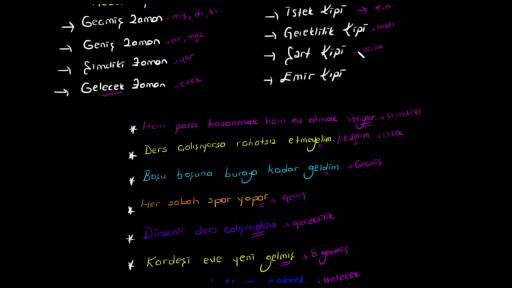 → Geçmiş Zaman → mış, dı, ti
→ Geniş Zaman → ar, maz
→ Şimdiki Zaman → yor
→ Gelecek Zaman → ecek
→ İstek Kipi → e.a
→ Gereklilik Kipi → malı
→ Şart Kipi → se,sa
→ Emir Kipi
* Hem para kazanmak hem ev almak istiyor. → şimdiki
* Ders çalışıyorsa rahatsız etmeyelim. / edelim → istek
* Boşu boşuna buraya kadar geldim. → Geçmiş
* Her sabah spor yapar → geniş
* Düzenli ders çalışmalısın → gereklilik
* Kardeşi eve yeni gelmiş → geçmiş
→ gelecek